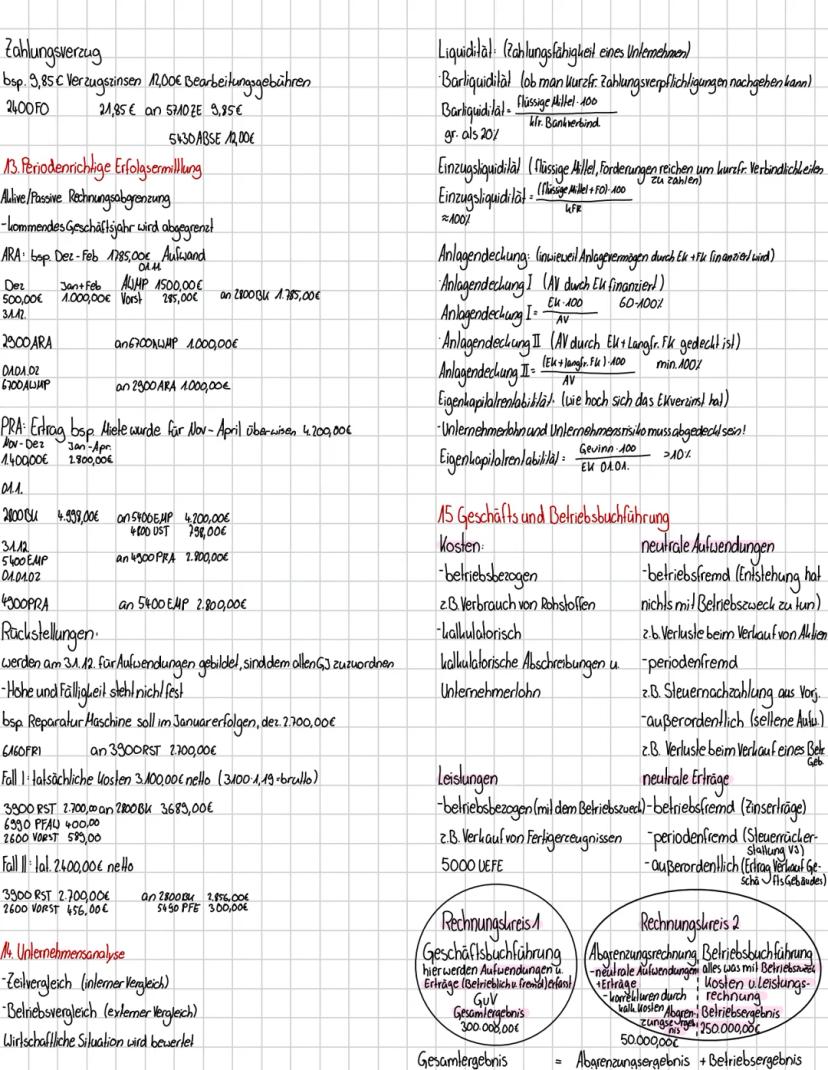 Zahlungsverzug
bsp. 9,85€ Verzugszinsen 12,00€ Bearbeitungsgebühren
2400 FO 21,85€ an 5710 ZE 9,85€
5430 ABSE 12,00€
13. Periodenrichtige Erfolgsermittlung
Aktive/Passive Rechnungsabgrenzung
-kommendes Geschäftsjahr wird abgegrenzt
ARA: bsp. Dez-Feb 1785,00€ Aufwand
01.11
Dez Jan+Feb AWMP 1500,00€
500,00€ 1.000,00€ Vorst 285,00€ an 2800 BK 1.785,00€
31.12.
2900 ARA an 6700 AWMP 1.000,00€
01.01.02
6700 AWMP an 2900 ARA 1.000,00€
PRA: Ertrag bsp. Miete wurde für Nov-April überwisen 4.200,00€
Nov-Dez Jan-Apr.
1.400,00€ 2.800,00€
01.1.
2800 BK 4.998,00€ an 5400 EMP 4.200,00€
4800 UST 798,00€
31.12
5400 EMP an 4900 PRA 2.800,00€
01.01.02
4900 PRA an 5400 EMP 2.800,00€
Rückstellungen:
werden am 31.12. für Aufwendungen gebildet, sind dem alten GJ zuzuordnen
-Höhe und Fälligkeit steht nicht fest
bsp. Reparatur Maschine soll im Januar erfolgen, dez. 2.700,00€
6160 FRI an 3900 RST 2.700,00€
Fall I: tatsächliche Kosten 3.100,00€ netto (3100·1,19=brutto)
3900 RST 2.700,00 an 2800 BK 3689,00€
6990 PFAW 400,00
2600 VORST 589,00
Fall II: tat. 2.400,00€ netto
3900 RST 2.700,00€ an 2800 BK 2.856,00€
2600 VORST 456,00€ 5490 PFE 300,00€
14. Unternehmensanalyse
-Zeitvergleich (interner Vergleich)
-Betriebsvergleich (externer Vergleich)
Wirtschaftliche Situation wird bewertet
Liquidität: (Zahlungsfähigkeit eines Unternehmen)
·Barliquidität (ob man kurzfr. Zahlungsverpflichtigungen nachgehen kann)
Barliquidität = flüssige Mittel · 100
kfr. Bankverbind.
gr. als 20%
Einzugsliquidität (flüssige Mittel, Forderungen reichen um kurzfr. Verbindlichkeiten
zu zahlen)
Einzugsliquidität = (flüssige Mittel + FO) · 100
KFR
≈100%
Anlagendeckung: (inwieweil Anlagevermögen durch EK+FK finanziert wird)
·Anlagendeckung I (AV durch EK finanziert)
Anlagendeckung I = EK · 100 60-100%
AV
·Anlagendeckung II (AV durch EK + Langfr. FK gedeckt ist)
Anlagendeckung II = (EK + langfr. FK) · 100 min. 100%
AV
Eigenkapitalrentabilität: (wie hoch sich das EK verzinst hat)
-Unternehmerlohn und Unternehmensrisiko muss abgedeckt sein!
Eigenkapitalrentabilität = Gewinn · 100 >10%
EK 01.01.
15 Geschäfts und Betriebsbuchführung
Kosten:
-betriebsbezogen
z.B. Verbrauch von Rohstoffen
-kalkulatorisch
kalkulatorische Abschreibungen u.
Unternehmerlohn
neutrale Aufwendungen
-betriebsfremd (Entstehung hat
nichts mit Betriebszweck zu tun)
z.b. Verluste beim Verkauf von Aktien
-periodenfremd
z.B. Steuernachzahlung aus Vorj.
-außerordentlich (seltene Aufw.)
z.B. Verluste beim Verkauf eines Betr.
Geb.
Leistungen
-betriebsbezogen (mit dem Betriebszweck)
z.B. Verkauf von Fertigerzeugnissen
5000 UEFE
neutrale Erträge
-betriebsfremd (Zinserträge)
-periodenfremd (Steuerrücker-
stattung VJ)
-außerordentlich (Ertrag Verkauf Ge-
schäftsGebäudes)
Rechnungskreis 1
Geschäftsbuchführung
hier werden Aufwendungen u.
Erträge (Betrieblich u. fremd) erfasst
GuV
Gesamtergebnis
300.000,00€
Rechnungskreis 2
Abgrenzungsrechnung
-neutrale Aufwendungen
+Erträge
-korrekturen durch
kalk. Kosten
Abgren-
zungserergeb
nis
50.000,00€
Betriebsbuchführung
alles was mit Betriebszweck
Kosten u. Leistungs-
rechnung
Betriebsergebnis
250.000,00€
Gesamtergebnis = Abgrenzungsergebnis + Betriebsergebnis